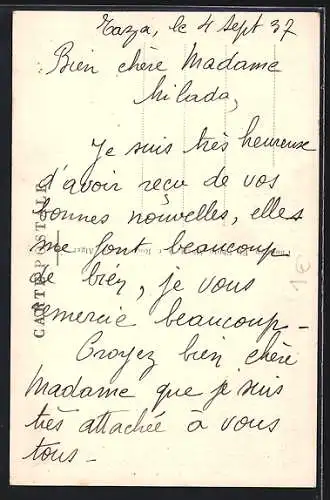 Taza, le 4 Sept 37
Bien chère Madame
Milada,
Je suis très heureuse
d'avoir reçu de vos
bonnes nouvelles, elles
me font beaucoup
de bien, je vous
remercie beaucoup -
Croyez bien chère
Madame que je suis
très attachée à vous
tous -
CARTE POSTALE
1€